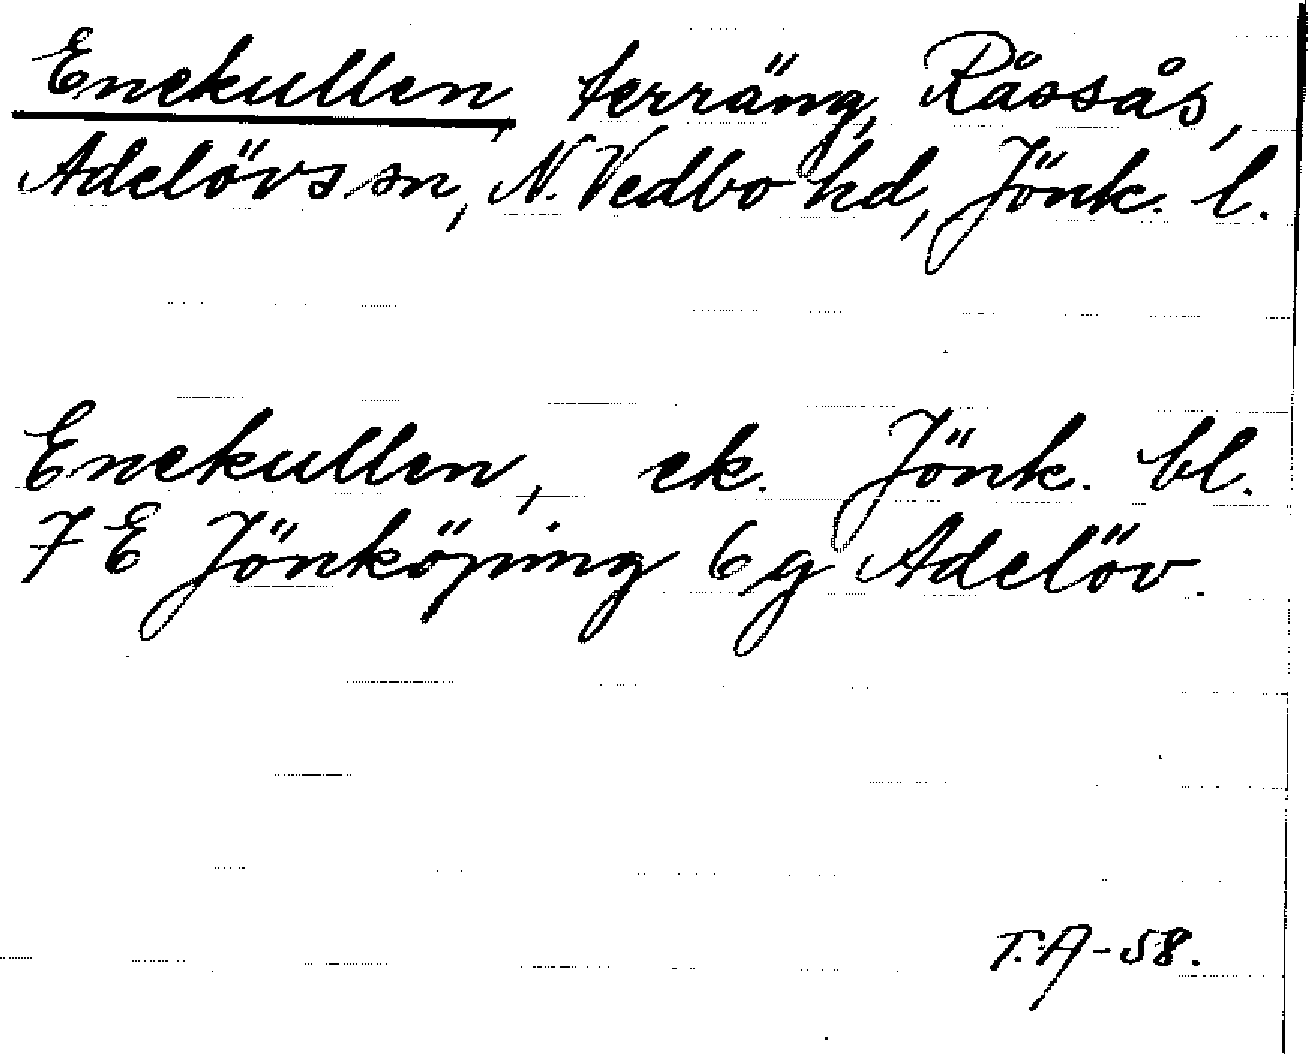 Enekullen, terräng, Råssås,
Adelövs sn, N. Vedbo hd, Jönk. l.
Enekullen, ek. Jönk. bl.
7 E Jönköping 6 g Adelöv.
T.A-58.